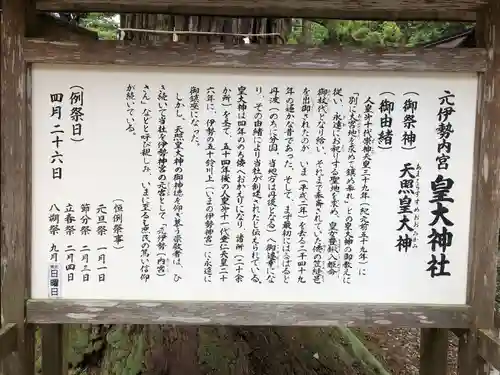 元伊勢内宮 皇大神社
(御祭神) 天照皇大神
あまてらすすめおおみかみ
(御由緒)
人皇第十代崇神天皇三十九年(紀元前五十九年)に
「別に大宮地を求めて鎮め祭れ」との皇大神の御教えに
従い、永遠にお祀りする聖地を求め、皇女豊鋤入姫命
御杖代となり給い、それまで奉斎されていた倭の笠縫邑
を出御されたのが、いま(平成二年)を去る二千四十九
年の遥かな昔であった。そして、まず最初にはるばると
丹波(のちに分国、当地方は丹後となる)へ御遷幸にな
り、その由緒により当社が創建されたと伝えられている。
皇大神は四年ののち倭へおかえりになり、諸所(二十余
か所)を経て、五十四年後の人皇第十一代垂仁天皇二十
六年に、伊勢の五十鈴川上(いまの伊勢神宮)に永遠に
御鎮座になった。
しかし、天照皇大神の御神徳を仰ぎ慕う崇敬者は、ひ
き続いて当社を伊勢神宮の元宮として〝元伊勢(内宮)
さん〟などと呼び親しみ、いまに至るも庶民の篤い信仰
が続いている。
(恒例祭事)
元旦祭 一月一日
節分祭 二月三日
立春祭 二月四日
八朔祭 九月第一日曜日
(例祭日)
四月二十六日